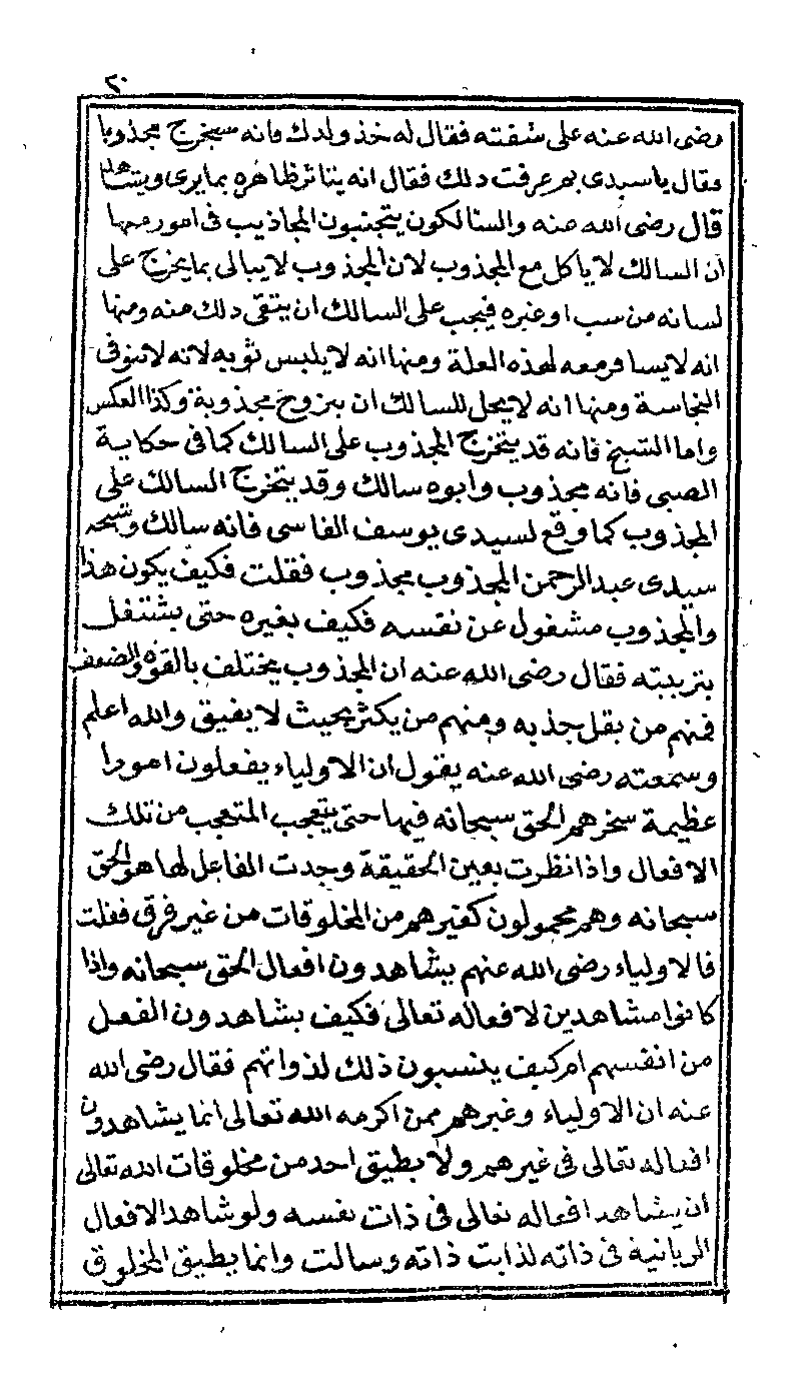 ٢٠
رضى الله عنه على شفته فقال له خذ ولدك فانه سيخرج مجذوبا
فقال يا سيدى بم عرفت ذلك فقال انه يتاثر ظاهره بما يرى ويشاهد
قال رضى الله عنه والسالكون يتجنبون المجاذيب فى امور منها
ان السالك لا ياكل مع المجذوب لان المجذوب لا يبالى بما يخرج على
لسانه من سب او غيره فيجب على السالك ان يتقى ذلك منه ومنها
انه لا يسافر معه لهذه العلة ومنها انه لا يلبس ثوبه لانه لا يتوقى
النجاسة ومنها انه لا يحل للسالك ان يتزوج مجذوبة وكذا العكس
واما الشيخ فانه قد يتخرج المجذوب على السالك كما فى حكاية
الصبى فانه مجذوب وابوه سالك وقد يتخرج السالك على
المجذوب كما وقع لسيدى يوسف الفاسى فانه سالك وشيخه
سيدى عبد الرحمن المجذوب مجذوب فقلت فكيف يكون هذا
والمجذوب مشغول عن نفسه فكيف بغيره حتى يشتغل
بتربيته فقال رضى الله عنه ان المجذوب يختلف بالقوة والضعف
فمنهم من يقل جذبه ومنهم من يكثر بحيث لا يفيق والله اعلم
وسمعته رضى الله عنه يقول ان الاولياء يفعلون امورا
عظيمة سخرهم الحق سبحانه فيها حتى يتعجب المتعجب من تلك
الافعال واذا نظرت بعين الحقيقة وجدت الفاعل لها هو الحق
سبحانه وهم محمولون كغيرهم من المخلوقات من غير فرق فقلت
فالاولياء رضى الله عنهم يشاهدون افعال الحق سبحانه واذا
كانوا مشاهدين لافعاله تعالى فكيف يشاهدون الفعل
من انفسهم ام كيف ينسبون ذلك لذواتهم فقال رضى الله
عنه ان الاولياء وغيرهم ممن اكرمه الله تعالى انما يشاهدون
افعاله تعالى فى غيرهم ولا يطيق احد من مخلوقات الله تعالى
ان يشاهد افعاله تعالى فى ذات نفسه ولو شاهد الافعال
الربانية فى ذاته لذابت ذاته وسالت وانما يطيق المخلوق